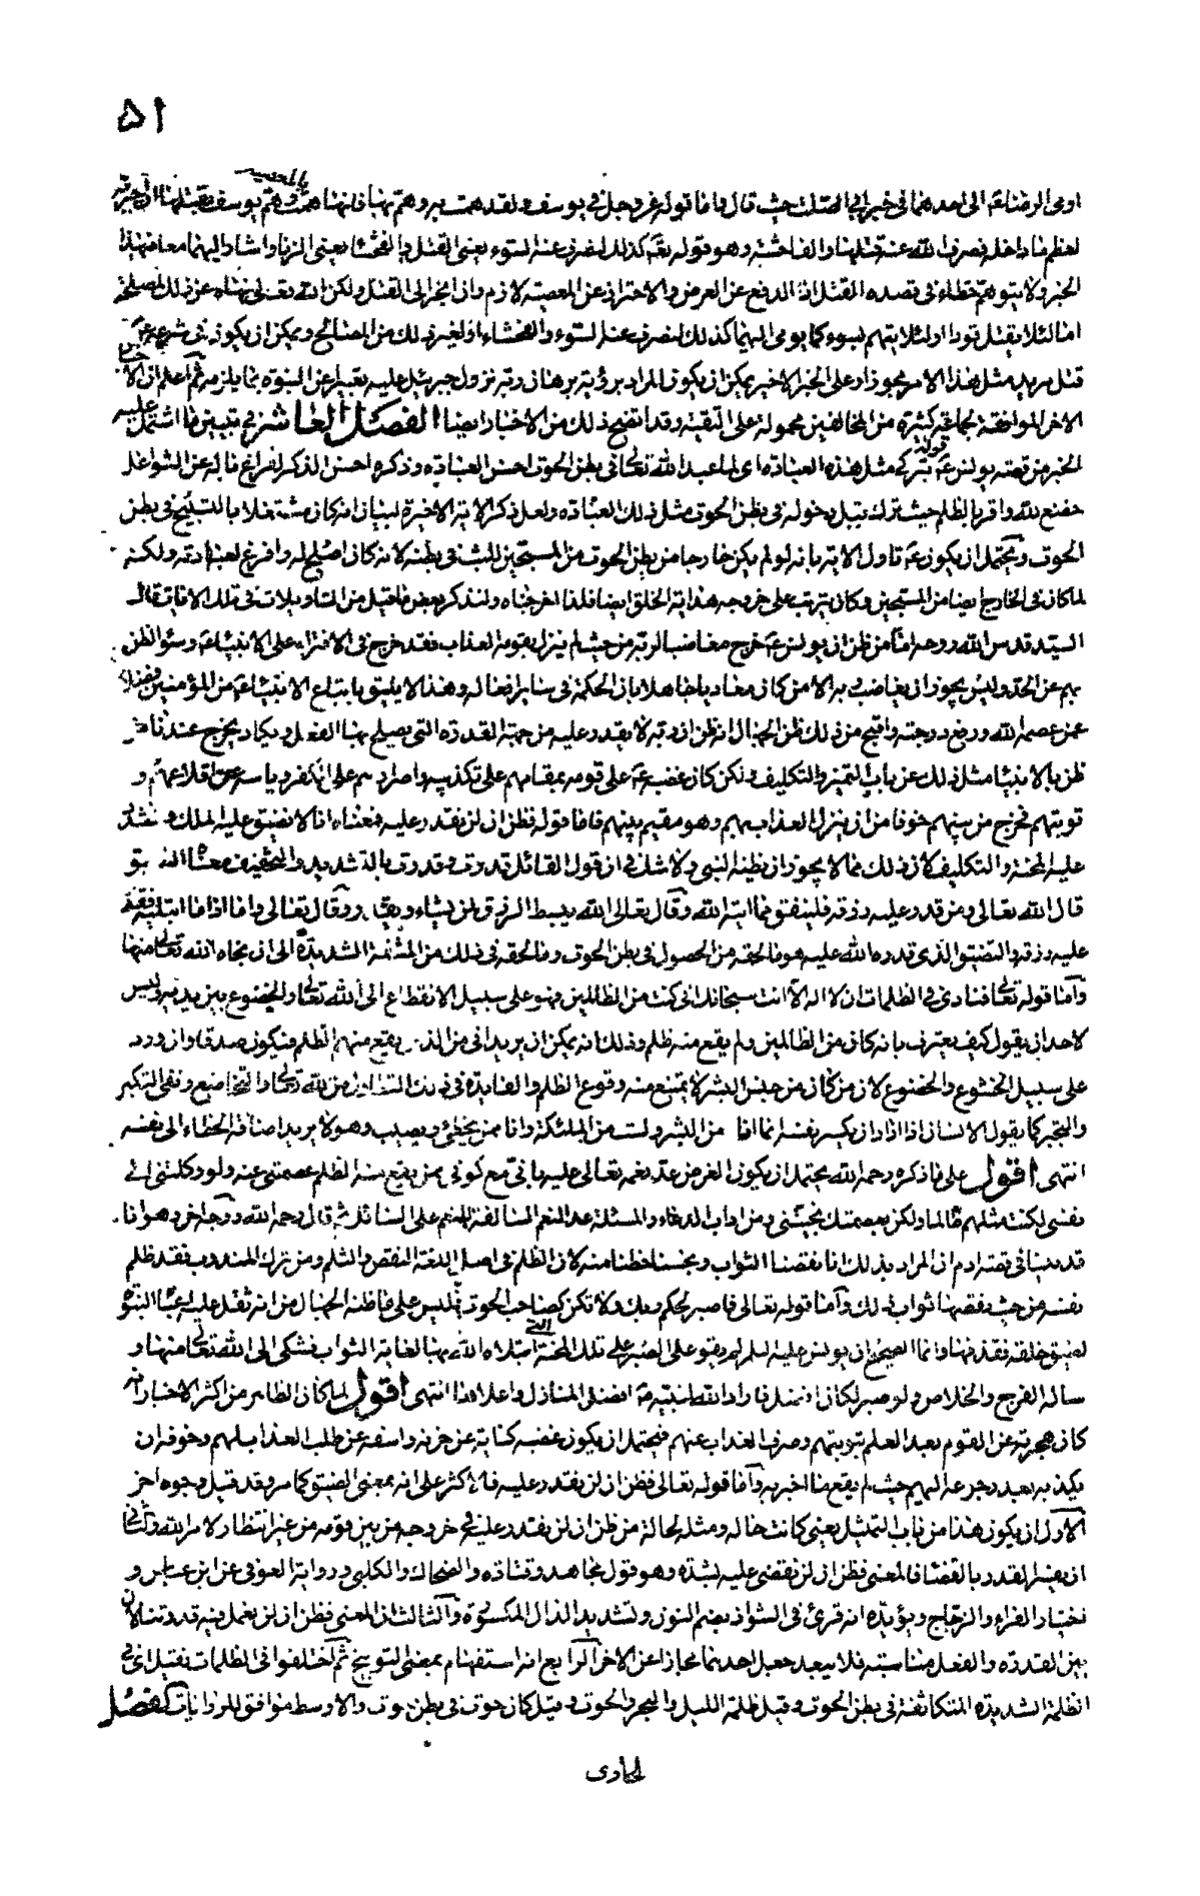 ۵۱
اومى الرضا عه الى احدهما فى خبر ابى الصلت حيث قال واما قوله عز وجل فى يوسف ولقد همت به وهم بها فانها همت بالمعصية وهم يوسف بقتلها ان اجبرته
لعظم ما داخله فصرف الله عنه قتلها والفاحشة وهو قوله تعه كذلك لنصرف عنه السوء يعنى القتل والفحشاء يعنى الزنا واشار اليهما معا فى هذا
الخبر ولا يتوهم خطاءه فى قصده القتل اذ الدفع عن العرض والاحتراز عن المعصية لازم وان انجر الى القتل ولكن الله تعالى نهاه عن ذلك لمصلحة
اما لئلا يقتل قودا او لئلا يتهم بسوء كما يومى اليهما كذلك لنصرف عنه السوء والفحشاء او لغير ذلك من المصالح ويمكن ان يكون فى شرعه عه
قتل مريد مثل هذا الامر مجوزا وعلى الخبر الاخير يمكن ان يكون المراد برؤية برهان ربه نزول جبرئيل عليه تعبيرا عن النبوة بما يلزمه ثم اعلم ان الاخبار
الاخر الموافقة لجماعة كثيرة من المخالفين محمولة على التقية وقد اتضح ذلك من الاخبار ايضا الفصل العاشر فى تبيين ما اشتمل عليه
الخبر من قصة يونس عه قوله تركى مثل هذه العبادة اى لما عبد الله تعالى فى بطن الحوت احسن العبادة وذكره احسن الذكر لفراغ باله عن الشواغل
خضع لله واقر بالظلم حيث ترك قبل دخوله فى بطن الحوت مثل ذلك العبادة ولعل ذكر الاية الاخيرة لبيان انه كان مشتغلا بالتسبيح فى بطن
الحوت ويحتمل ان يكون عه تاول الاية بانه لو لم يكن خارجا من بطن الحوت من المسبحين للبث فى بطنه لانه كان اصلح له وافرغ لعبادته ولكنه
لما كان فى الخارج ايضا من المسبحين وكان يترتب على خروجه هداية الخلق ايضا فلذا اخرجناه ولنذكر بعض ما قيل من التاويلات فى تلك الايات قال
السيد قدس الله روحه اما من ظن ان يونس عه خرج مغاضبا لربه من حيث لم ينزل بقومه العذاب فقد خرج فى الافتراء على الانبياء وسوء الظن
بهم عن الحد وليس يجوز ان يغاضب ربه الا من كان معاديا له جاهلا بان الحكمة فى ساير افعاله وهذا لا يليق باتباع الانبياء من المؤمنين فضلا
عمن عصمه الله ورفع درجته واقبح من ذلك ظن الجهال انه ظن ان ربه لا يقدر عليه من جهة القدرة التى يصلح بها الفعل ويكاد يخرج عندنا من
ظن بالانبيا مثل ذلك عن باب التميز والتكليف ولكن كان غضبه عه على قومه بمقامهم على تكذيبه واصرارهم على الكفر وياسه عن اقلاعهم و
توبتهم فخرج من بينهم خوفا من ان ينزل العذاب بهم وهو مقيم بينهم فاما قوله فظن ان لن نقدر عليه فمعناه انا لا نضيق عليه المسلك ونشدد
عليه المحنة والتكليف لان ذلك مما لا يجوز ان يظنه النبى ولا شك فى ان قول القائل قدرت وقدرت بالتشديد والتخفيف معناه التضييق
قال الله تعالى ومن قدر عليه رزقه فلينفق مما اتيه الله وقال تعالى الله يبسط الرزق لمن يشاء ويقدر وقال تعالى واما اذا ما ابتليه فقدر
عليه رزقه والتضييق الذى قدره الله عليه هو ما لحقه من الحصول فى بطن الحوت وما لحقه فى ذلك من المشقة الشديدة الى ان نجاه الله تعالى منها
واما قوله تعالى فنادى فى الظلمات ان لا اله الا انت سبحانك انى كنت من الظالمين فهو على سبيل الانقطاع الى الله تعالى والخضوع بين يديه وليس
لاحد ان يقول كيف يعترف بانه كان من الظالمين ولم يقع منه ظلم وذلك انه يمكن ان يريد انى من الذين يقع منهم الظلم فيكون صدقا وان ورد
على سبيل الخشوع والخضوع لان من كان من جنس البشر لا يمتنع منه وقوع الظلم والفايدة فى ذلك التطامن لله تعالى والتخاضع ونفى التكبر
والتجبر كما يقول الانسان اذا اراد ان يكسر نفسه انما انا من البشر ولست من الملئكة وانا ممن يخطئ ويصيب وهو لا يريد اضافة الخطاء الى نفسه
انتهى اقول على ما ذكره رحمه الله يحتمل ان يكون الغرض عد نعمه تعالى عليه بانى مع كونى ممن يقع منه الظلم عصمتنى عنه ولو وكلتنى الى
نفسى لكنت مثلهم ظالما ولكن بعصمتك نجيتنى ومن اداب الدعاء والمسئلة عد النعم السالفة للمنعم على السائل ثم قال رحمه الله ووجه اخر وهو انا
قد بينا فى قصة ادم ان المراد بذلك انا نقصنا الثواب وبخسنا حظنا منه لان الظلم فى اصل اللغة النقص والثلم ومن ترك المندوب فقد ظلم
نفسه من حيث نقصها ثواب ذلك واما قوله تعالى فاصبر لحكم ربك ولا تكن كصاحب الحوت فليس على ما ظنه الجهال من انه ثقل عليه اعباء النبوة
لضيق خلقه فقذفها وانما الصحيح ان يونس عليه السلم لم يقو على الصبر على تلك المحنة التى ابتلاه الله بها لغاية الثواب فشكى الى الله تعالى منها و
ساله الفرج والخلاص ولو صبر لكان افضل فاراد الله لنبيه صه افضل المنازل واعلاها انتهى اقول لما كان الظاهر من اكثر الاخبار انه
كان هجرته عن القوم بعد العلم بتوبتهم وصرف العذاب عنهم فيحتمل ان يكون غضبه كناية عن حزنه واسفه عن طلب العذاب لهم وخوفه ان
يكذبه بعد رجوعه اليهم حيث لم يقع ما اخبر به واما قوله تعالى فظن ان لن نقدر عليه فالاكثر على انه بمعنى الضيق كما مر وقد قيل وجوه اخر
الاول ان يكون هذا من باب التمثيل يعنى كانت حاله ومثله لحالة من ظن ان لن نقدر عليه فى خروجه من بين قومه من غير انتظار لامر الله والثانى
ان يفسر القدر بالقضاء فالمعنى فظن ان لن نقضى عليه بشدة وهو قول مجاهد وقتادة والضحاك والكلبى ورواية العوفى عن ابن عباس و
اختيار الفراء والزجاج ويؤيده انه قرئ فى الشواذ بضم النون وتشديد الدال المكسورة والثالث ان المعنى فظن ان لن نعمل فيه قدرتنا لان
بين القدرة والفعل مناسبة فلا يبعد جعل احدهما مجازا عن الاخر الرابع انه استفهام بمعنى التوبيخ ثم اختلفوا فى الظلمات فقيل اى فى
الظلمة الشديدة المتكاثفة فى بطن الحوت وقيل ظلمة الليل والبحر والحوت وقيل كان حوت فى بطن حوت والاوسط موافق للروايات الفصل
الحادى